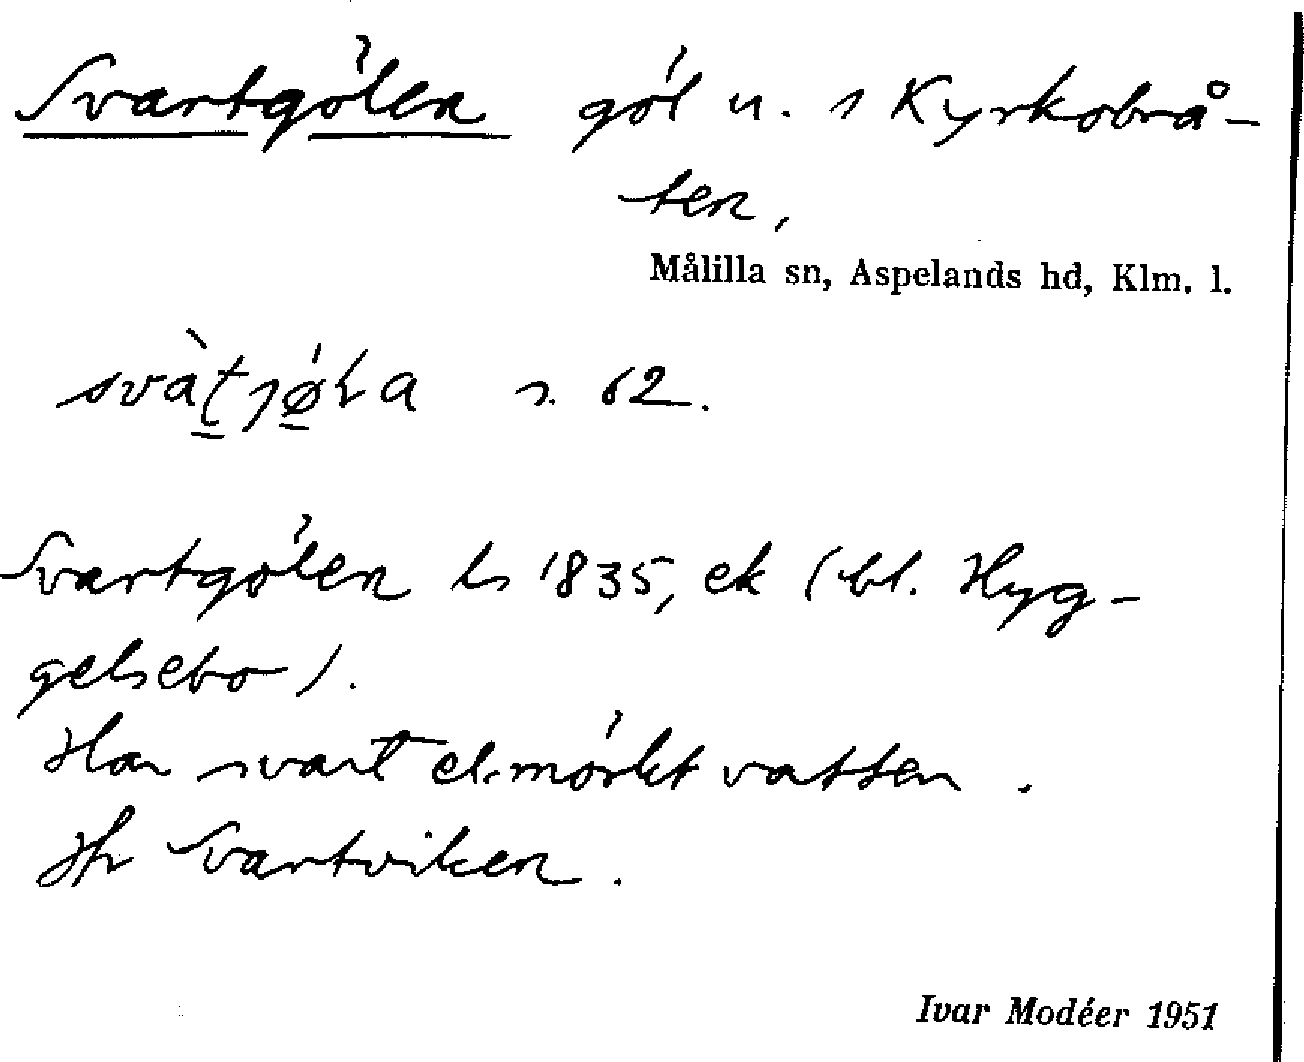 Svartgölen göl n. s Kyrkobrå-
ten,
Målilla sn, Aspelands hd, Klm. l.
s. 62.
Svartgölen ls 1835, ek (bl. Hyg-
gelsebo).
Har svart el. mörkt vatten.
Jfr Svartviken.
Ivar Modéer 1951